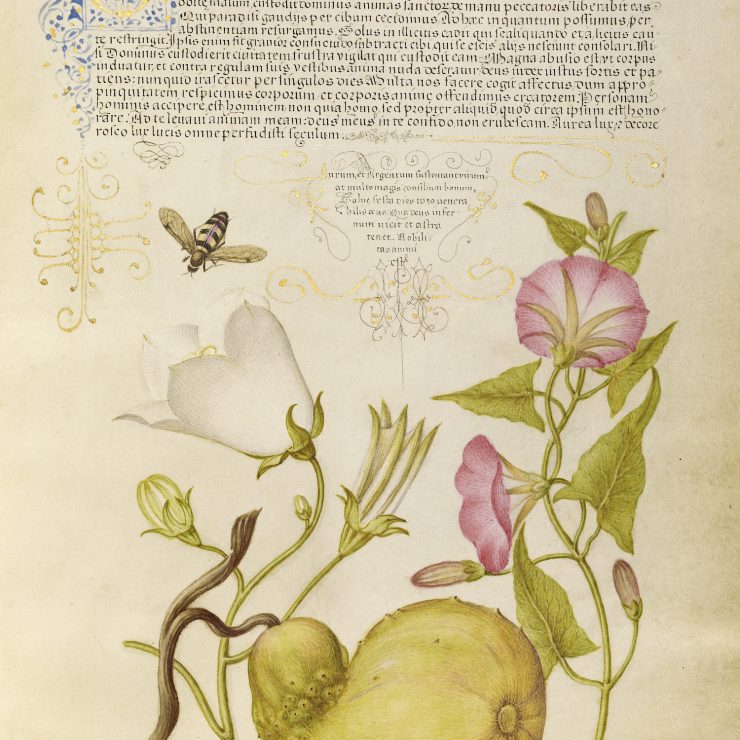 odite malum, custodit dominus animas sanctor. de manu peccatoris liberabit eas
Qui paradisi gaudys per cibum cecidimus Ad hæc in quantum possumus, per
abstinentiam resurgamus. Solus in illicitis cadit, qui se aliquando et a licitis cau
te restringit. Ipsis enim sit gravior
cibi, qui se
alijs nesciunt consolari. Ni
si Dominus custodierit civitatem frustra vigilat qui custodit eam. Magna abusio est vt corpus
induatur, et contra regulam suis vestibus anima nuda deseratur. deus iudex iustus fortis et pa
tiens: nunquid irascetur per singulos dies Multa nos facere cogit affectus, dum appro
pinquitatem respicimus corporum, et corporis animæ offendimus creatorem. Personam
hominis accipere, est hominem, non quia homo, sed propter aliquid, quod circa ipsum est hono
rare. Ad te levavi animam meam: deus meus in te confido, non erubescam. Aurea lux, & decore
roseo lux lucis omne perfudisti seculum.
urum, et Argentum sustentant virum,
at multo magis consilium bonum.
Salue festa dies toto venera
bilis æuo. Qua deus infer
num vicit et astra
tenet. Nobili
tas animi
est